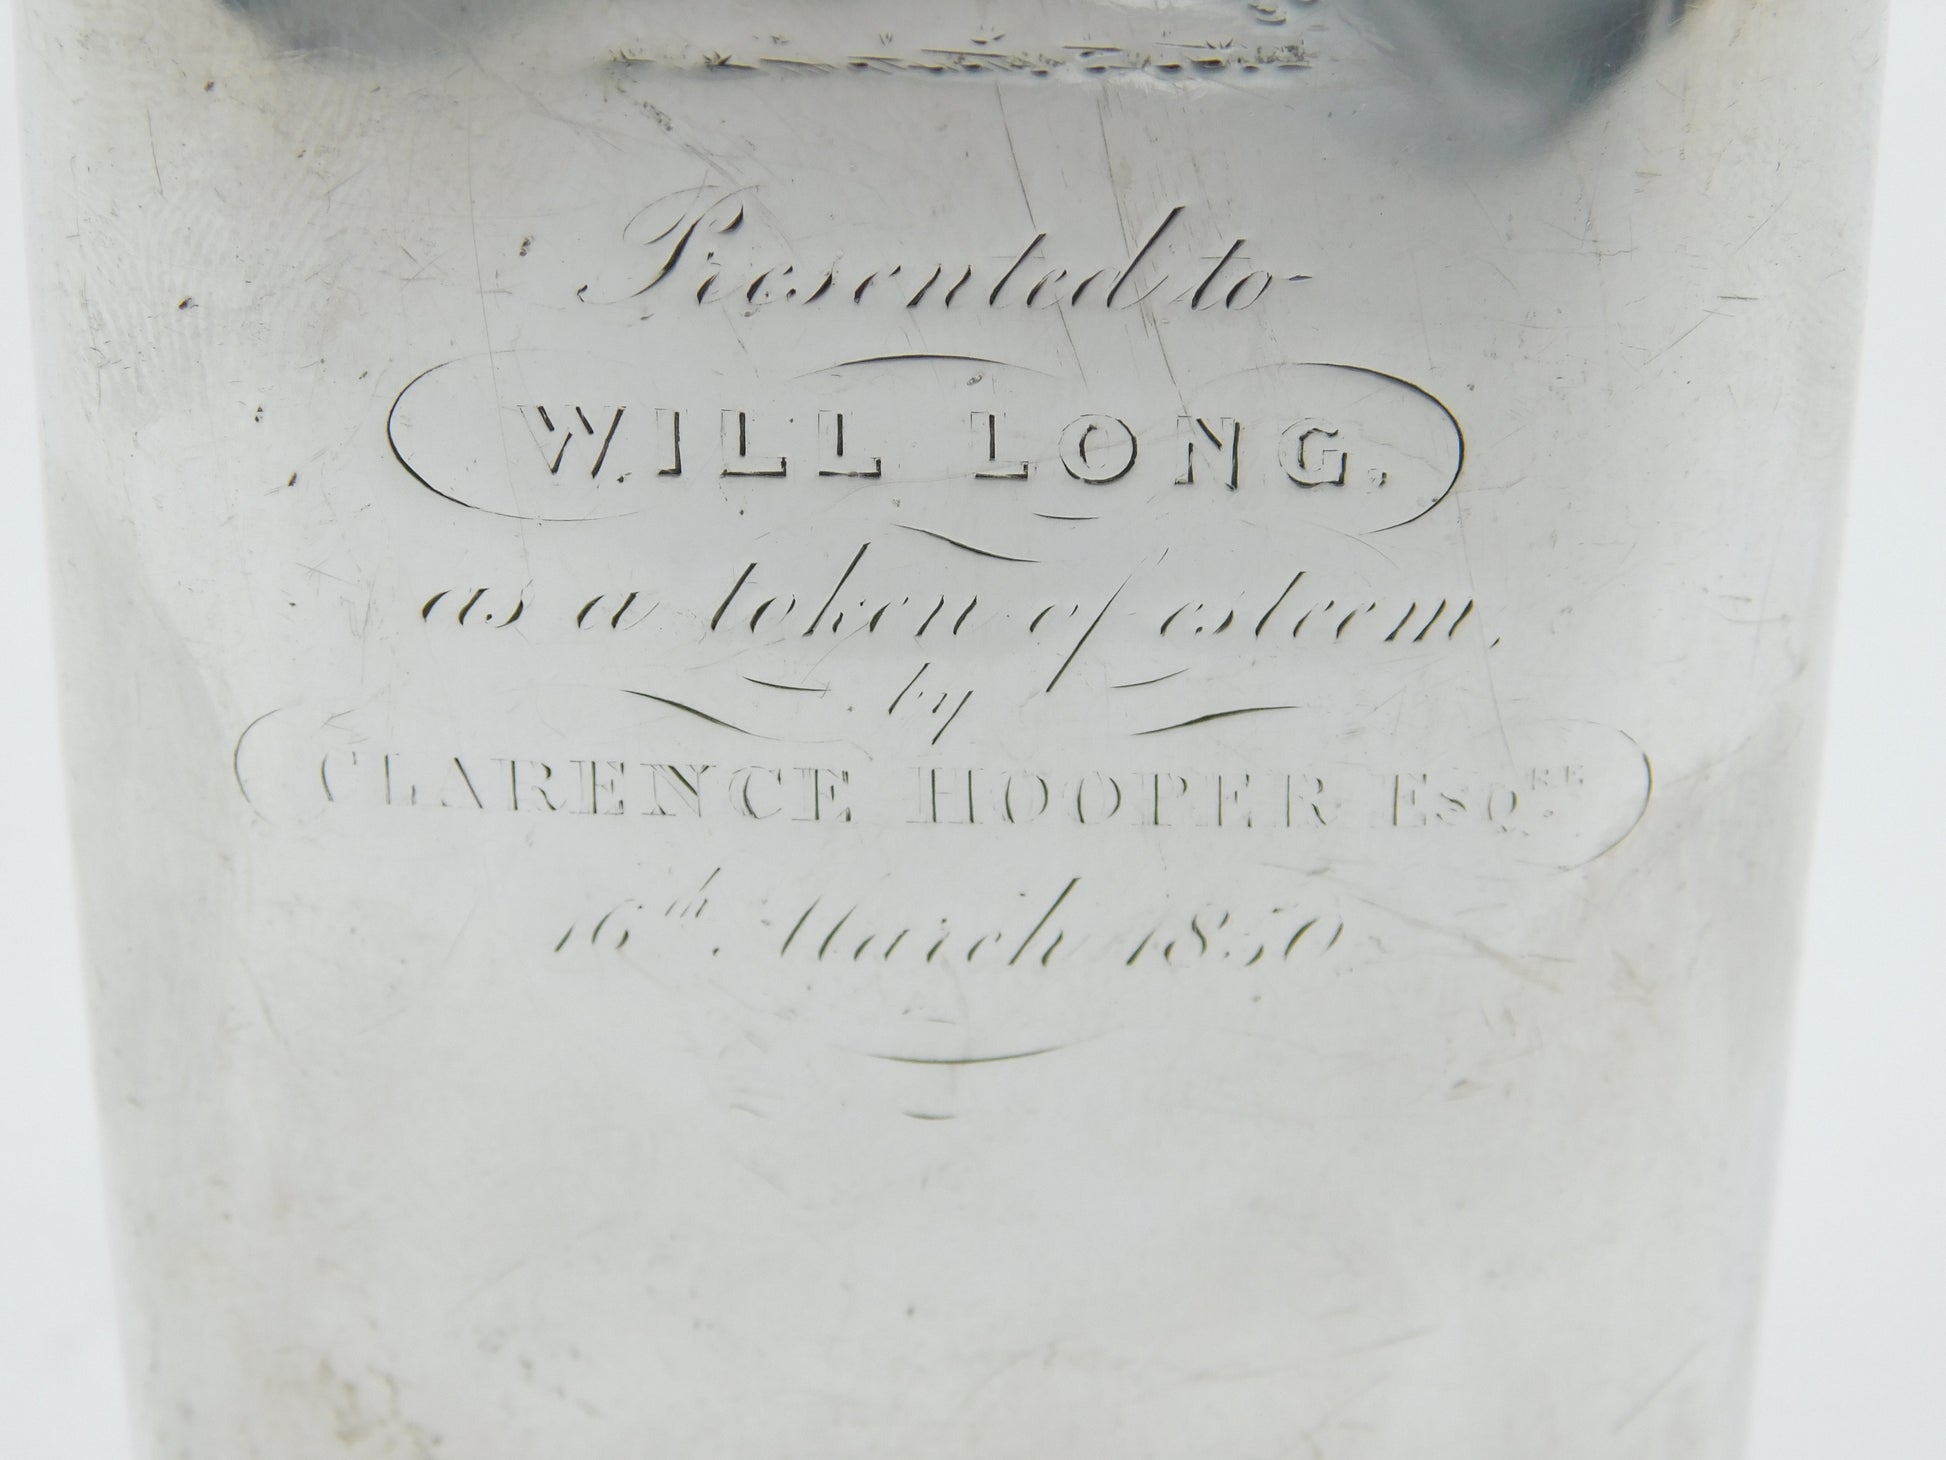 Presented to
WILL LONG.
as a token of esteem,
by
CLARENCE HOOPER ESQ.RE
16th. March 1850